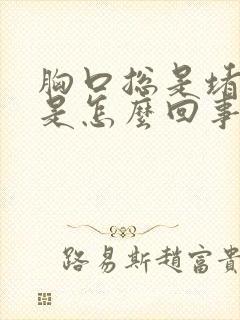 胸口总是堵
是怎麼回事
路易斯趙富貴